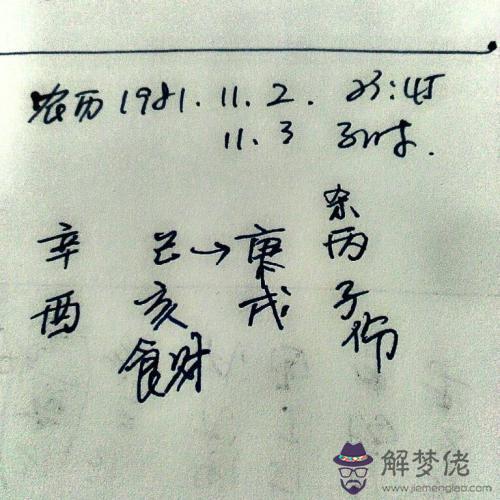 农历1981.11.2. 23:45
11.3 子时.
杀
辛 己→庚 丙
酉 亥 戌 子
食财 伤
解梦佬
www.jiemenglao.com